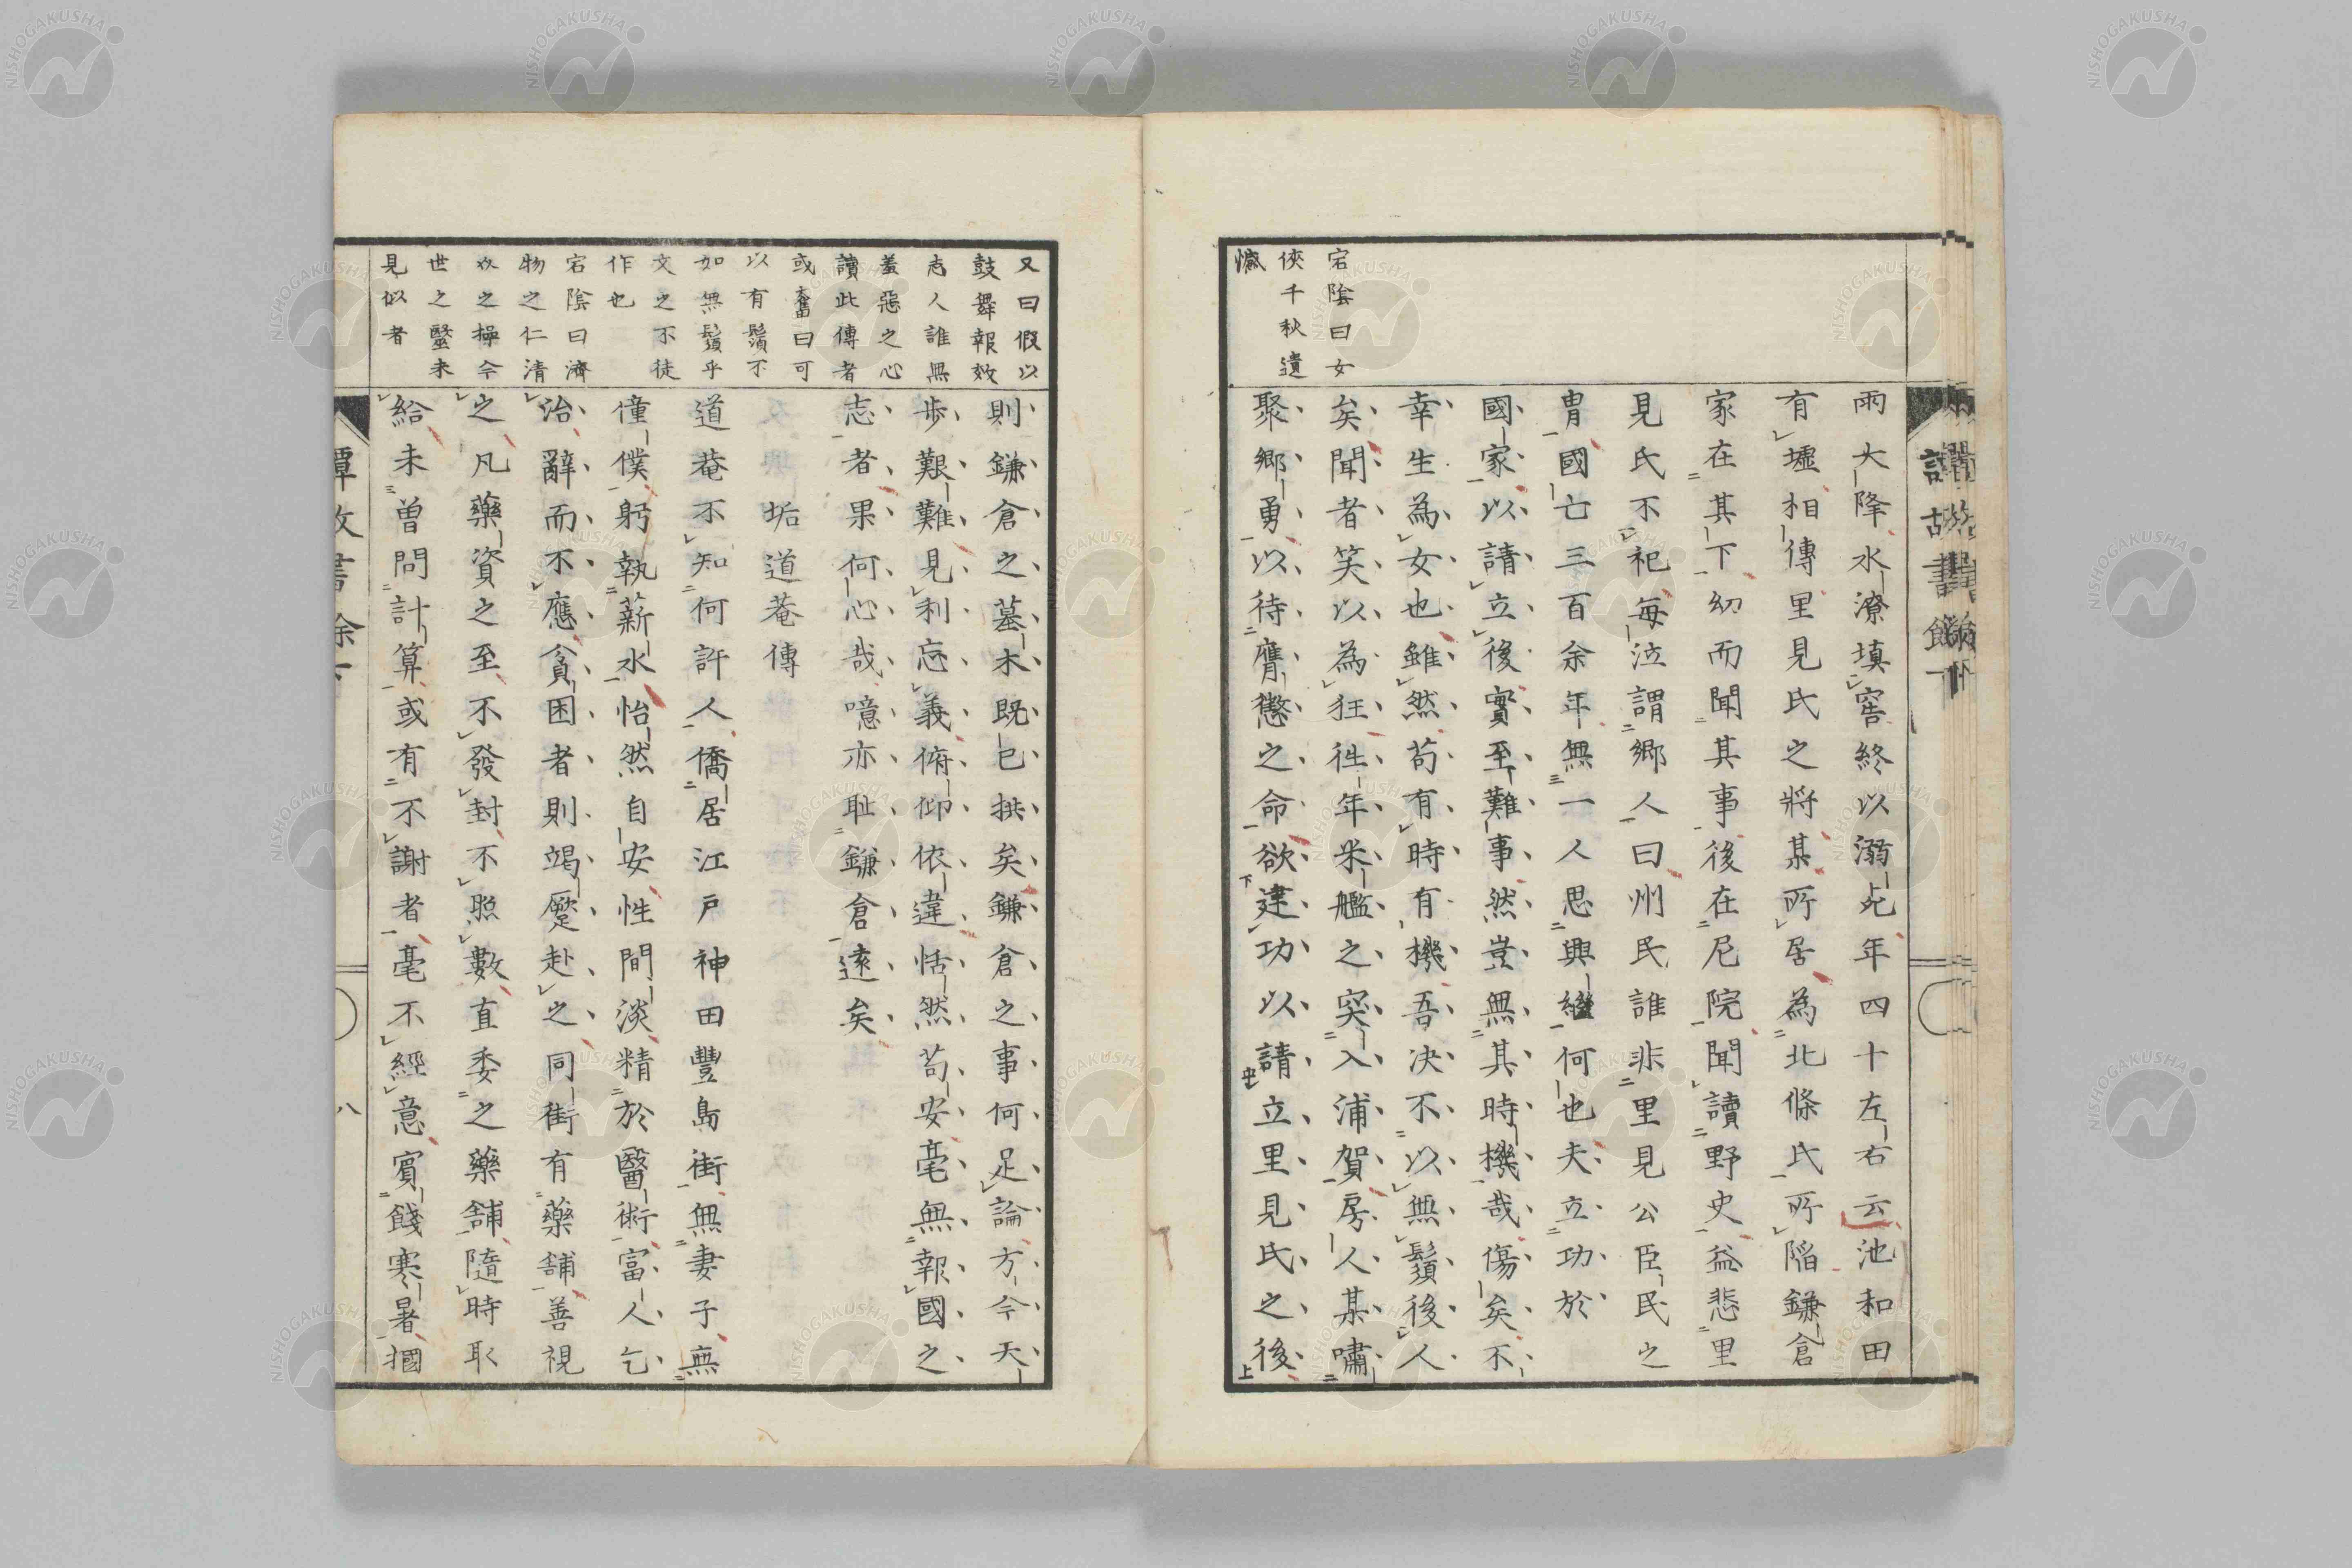 宕陰曰女
俠千秋遺
憾
雨大降水潦填窖終以溺死年四十左右云池和田
有墟相傳里見氏之將某所居為北條氏所陷鎌倉
家在其下幼而聞其事後在尼院聞讀野史益悲里
見氏不祀每泣謂鄉人曰州民誰非里見公臣民之
冑國亡三百余年無一人思興繼何也夫立功於
國家以請立後實至難事然豈無其時機哉傷矣不
幸生為女也雖然苟有時有機吾决不以無鬚後人
矣聞者笑以為狂徃年米艦之突入浦賀房人某嘯
聚鄉勇以待膺懲之命欲建功以請立里見氏之後
又曰假以
鼓舞報效
志人誰無
羞惡之心
讀此傳者
或奮曰可
以有鬚不
如無鬚乎
文之不徒
作也
宕陰曰濟
物之仁清
之操今
世之毉未
見似者
則鎌倉之墓木既已拱矣鎌倉之事何足論方今天
步艱難見利忘義俯仰依違恬然苟安毫無報國之
志者果何心哉噫亦耻鎌倉遠矣
垢道菴傳
道菴不知何許人僑居江戶神田豐島街無妻子無
僮僕躬執薪水怡然自安性間淡精於醫術富人乞
治辭而不應貧困者則竭蹷赴之同街有藥舖善視
之凡藥資之至不發封不照數直委之藥舖隨時取
給未曾問計算或有不謝者毫不經意賓餞寒暑摑
八